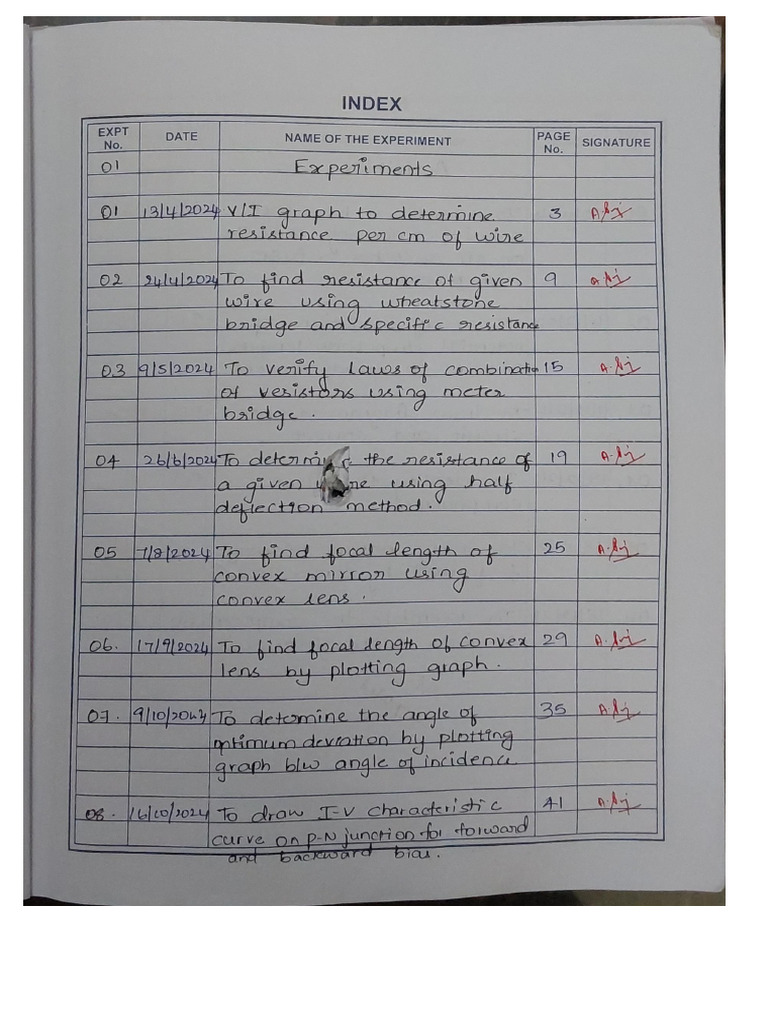 INDEX
EXPT No. DATE NAME OF THE EXPERIMENT PAGE No. SIGNATURE
01 Experiments
01 13/4/2024 V/I graph to determine 3
resistance per cm of wire
02 24/4/2024 To find resistance of given 9
wire using wheatstone
bridge and specific resistance
03 9/5/2024 To verify laws of combination 15
of veristors using meter
bridge.
04 26/6/2024 the resistance of 19
a given using half
deflection method.
05 7/8/2024 To find focal length of 25
convex mirror using
convex lens.
06. 17/9/2024 To find focal length of convex 29
lens by plotting graph.
07. 9/10/ To determine the angle of 35
deviation by plotting
graph b/w angle of incidence
08. 16/10/2024 To draw I-V characteristic 41
curve on P-N junction for forward
and backward bias.